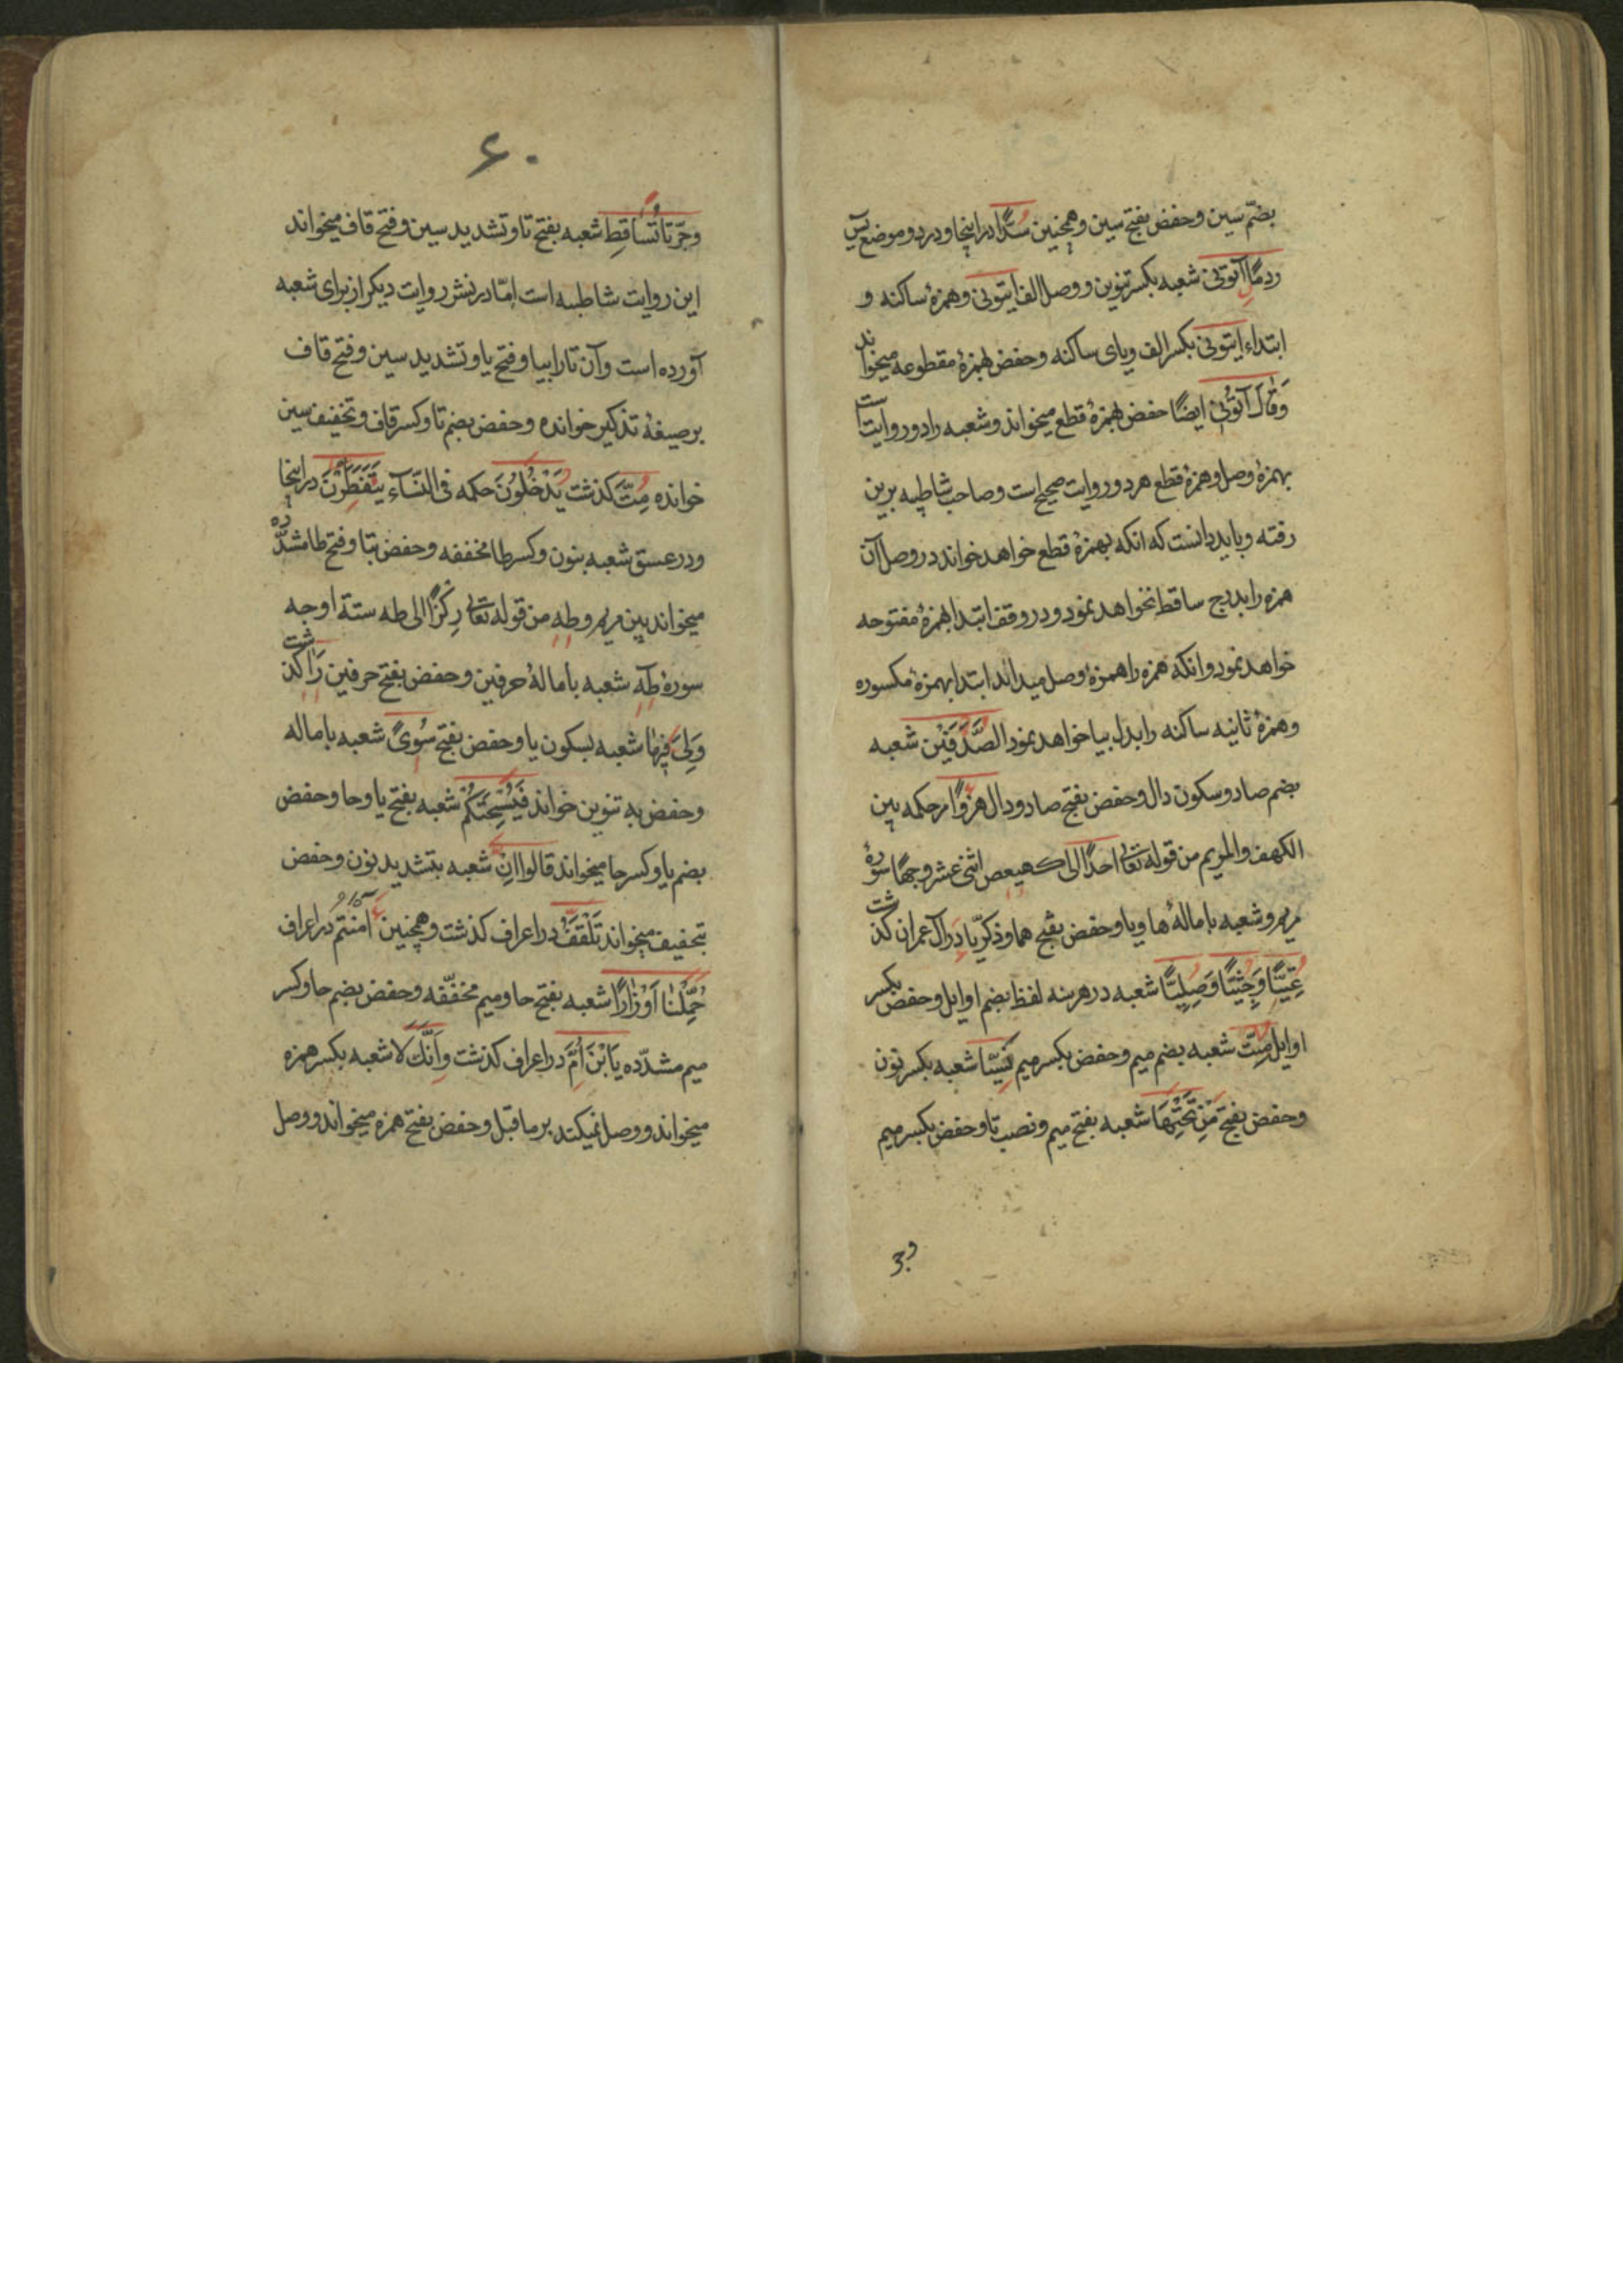 بضمّ سین و حفص بفتح سین و همچنین سُدًّا در اینجا و در دو موضع یس
ردمًا آتونی شعبه بکسر تنوین و وصل الف ایتونی و همزهٔ ساکنه و
ابتداء ایتونی بکسر الف و یای ساکنه و حفص بهمزهٔ مقطوعه میخواند
وَقَالَ آتُونی ایضًا حفص بهمزهٔ قطع میخواند و شعبه را دو روایت است
بهمزهٔ وصل و همزهٔ قطع هر دو روایت صحیح است و صاحب شاطبیه برین
رفته و باید دانست که انکه بهمزهٔ قطع خواهد خواند در وصل آن
همزه را بدرج ساقط نخواهد نمود و در وقف ابتدا بهمزهٔ مفتوحه
خواهد نمود و انکه همزه را همزهٔ وصل میداند ابتدا بهمزهٔ مکسوره
و همزهٔ ثانیه ساکنه را بدل بیا خواهد نمود الصَّدَفَیْن شعبه
بضم صاد و سکون دال و حفص بفتح صاد و دال هزوًا مر حکمه بین
الکهف و المریم من قوله تعالی احدًا الی کهیعص اثنی عشر وجهًا سورهٔ
مریم و شعبه بامالهٔ ها و یا و حفص بفتح هما و ذکریّا در آل عمران کذشت
عِتِیًّا وَجِثِیًّا وَصِلِیًّا شعبه در هر سه لفظ بضم اوایل و حفص بکسر
اوایل مِتّ شعبه بضم میم و حفص بکسر میم نَسْیًا شعبه بکسر نون
و حفص بفتح مِنْ تَحْتِهَا شعبه بفتح میم و نصب تا و حفص بکسر میم
و جر
۶۰
و جرّ تا تُسَاقِط شعبه بفتح تا و تشدید سین و فتح قاف میخواند
این روایت شاطبیه است امّا در نشر روایت دیکر از برای شعبه
آورده است و آن تا را بیا و فتح یا و تشدید سین و فتح قاف
بر صیغهٔ تذکیر خوانده و حفص بضم تا و کسر قاف و تخفیف سین
خوانده مِتّ کذشت یَدْخُلُونَ حکمه فی النّسآء یَتَفَطَّرْنَ در اینجا
و در عسق شعبه بنون و کسر طا مخففه و حفص بتا و فتح طا مشدّده
میخواند بین مریم و طه من قوله تعالی رِکْزًا الی طه ستة اوجه
سورهٔ طه شعبه بامالهٔ حرفین و حفص بفتح حرفین رَا کذشت
وَلِیَ فِیهَا شعبه بسکون یا و حفص بفتح سُوًی شعبه باماله
و حفص به تنوین خواند فَیُسْحِتَکُمْ شعبه بفتح یا و حا و حفص
بضم یا و کسر حا میخواند قالوا انِ شعبه بتشدید نون و حفص
بتخفیف میخواند تَلْقَفْ در اعراف کذشت و همچنین آمنتم در اعراف
حُمِّلْنَا اَوْزَارًا شعبه بفتح حا و میم مخفّفه و حفص بضم حا و کسر
میم مشدّده یَابْنَ اُمَّ در اعراف کذشت وَاَنَّكَ لا شعبه بکسر همزه
میخواند و وصل نمیکند بر ما قبل و حفص بفتح همزه میخواند و وصل